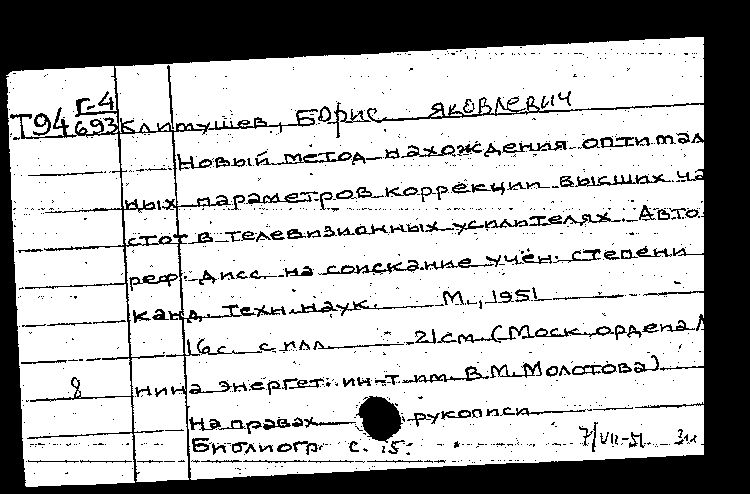 Г-4
Т94 693 Климушев, Борис Яковлевич
Новый метод нахождения оптимал
ных параметров коррекции высших ча
стот в телевизионных усилителях. Авто
реф. дисс. на соискание учён. степени
канд. техн. наук. М., 1951
16 с. с илл. 21 см. (Моск. ордена Л
8 нина энергет. ин-т им. В.М. Молотова)
На правах рукописи
Библиогр с. 15.
7/VII-51